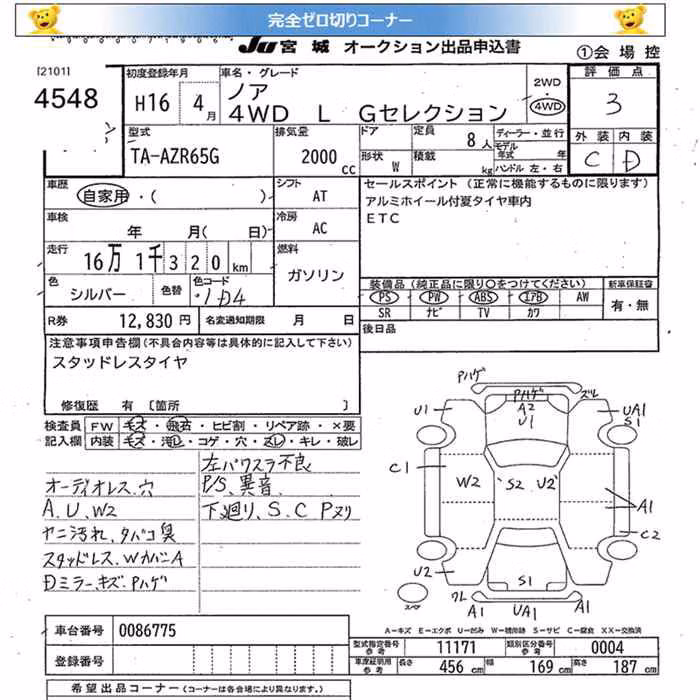 完全ゼロ切りコーナー
JU 宮城 オークション出品申込書 ①会場控
[2101] 初度登録年月 車名・グレード 2WD 評価点
4548 H16 4月 ノア 4WD 3
4WD L Gセレクション
外装 内装
C D
型式 排気量 ドア 定員 8人 ディーラー・並行
TA-AZR65G 2000cc 形状 W 積載 kg モデル年式 年 ハンドル 左・右
車歴 自家用・( ) シフト AT セールスポイント (正常に機能するものに限ります)
アルミホイール付夏タイヤ車内
ETC
車検 年 月( 日) 冷房 AC
走行 16万1千320km 燃料 ガソリン
装備品 (純正品に限り○をつけてください) 新車保証書
色 シルバー 色替 色コード 1D4
PS PW ABS エアB AW 有・無
SR ナビ TV カワ
R券 12,830円 名変通知期限 月 日
後日品
注意事項申告欄 (不具合内容等は具体的に記入して下さい)
スタッドレスタイヤ
修復歴 有 〔箇所 〕
検査員 FW キズ・飛石・ヒビ割・リペア跡・×要
記入欄 内装 キズ・汚レ・コゲ・穴・ズレ・キレ・破レ
左パワスラ不良
オーディオレス.穴 P/S.異音
A.U.W2 下廻り.S.C Pヌリ
ヤニ汚れ.タバコ臭
スタッドレス.WカバーA
Dミラー.キズ.Pハゲ
Pハゲ Pハゲ ズレ
U1 A2 U1 UA1 S1
C1 W2 S2 U2 A1
C2
U2 S1
スペア ワレ A1 UA1 A1
A-キズ E-エクボ U-凹み W-補修跡 S-サビ C-腐食 XX-交換済
車台番号 0086775
型式指定番号 参考 11171 類別区分番号 参考 0004
登録番号
車庫証明用 参考 長さ 456cm 幅 169cm 高さ 187cm
希望出品コーナー (コーナーは各会場により異なります。)